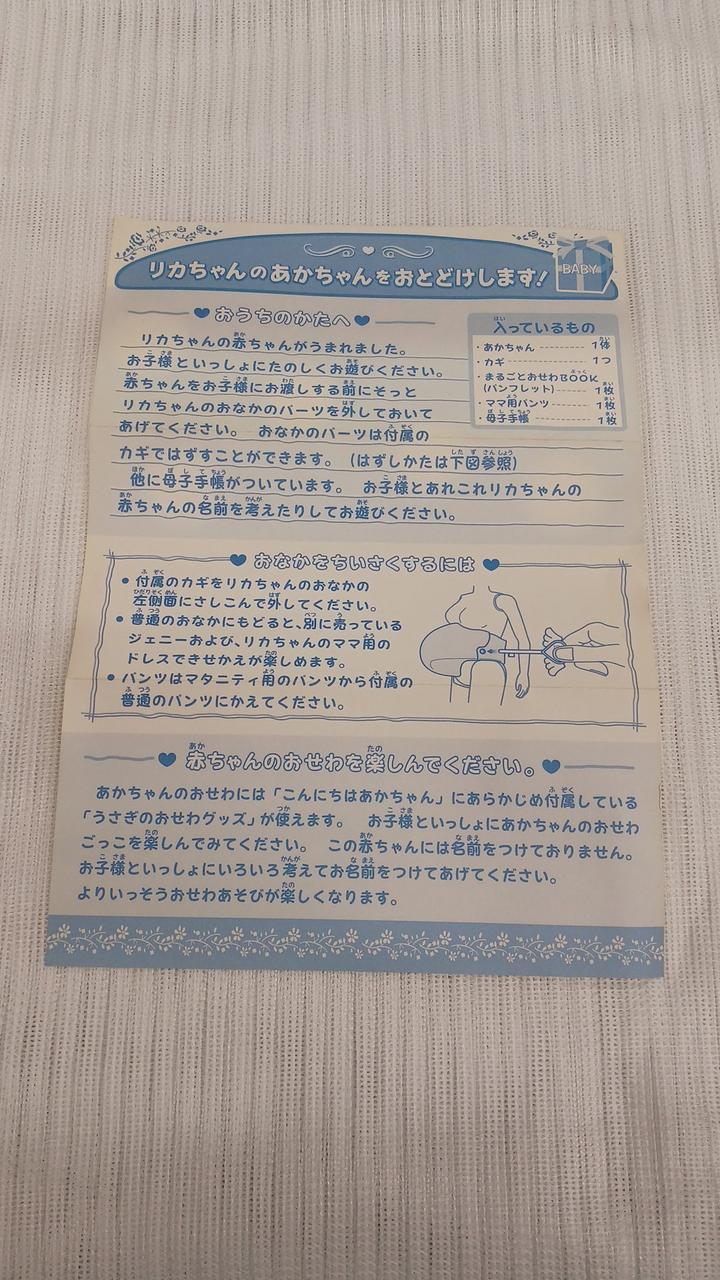 リカちゃんのあかちゃんをおとどけします!
BABY
おうちのかたへ
リカちゃんの赤ちゃんがうまれました。
お子様といっしょにたのしくお遊びください。
赤ちゃんをお子様にお渡しする前にそっと
リカちゃんのおなかのパーツを外しておいて
あげてください。 おなかのパーツは付属の
カギではずすことができます。(はずしかたは下図参照)
他に母子手帳がついています。 お子様とあれこれリカちゃんの
赤ちゃんの名前を考えたりしてお遊びください。
入っているもの
・あかちゃん 1体
・カギ 1つ
・まるごとおせわBOOK
(パンフレット) 1枚
・ママ用パンツ 1枚
・母子手帳 1枚
おなかをちいさくするには
● 付属のカギをリカちゃんのおなかの
左側面にさしこんで外してください。
● 普通のおなかにもどると、別に売っている
ジェニーおよび、リカちゃんのママ用の
ドレスできせかえが楽しめます。
● パンツはマタニティ用のパンツから付属の
普通のパンツにかえてください。
赤ちゃんのおせわを楽しんでください。
あかちゃんのおせわには「こんにちはあかちゃん」にあらかじめ付属している
「うさぎのおせわグッズ」が使えます。 お子様といっしょにあかちゃんのおせわ
ごっこを楽しんでみてください。 この赤ちゃんには名前をつけておりません。
お子様といっしょにいろいろ考えてお名前をつけてあげてください。
よりいっそうおせわあそびが楽しくなります。